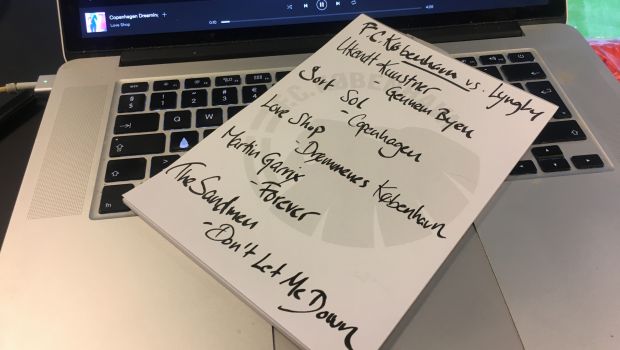 Copenhagen Dreaming
Love Shop
0:10
4:06
F.C. København vs. Lyngby
Ukendt Kunstner
- Gennem Byen
Sort Sol
- Copenhagen
Love Shop
- Drømmenes København
Martin Garrix
- Forever
The Sandmen
- Don't Let Me Down